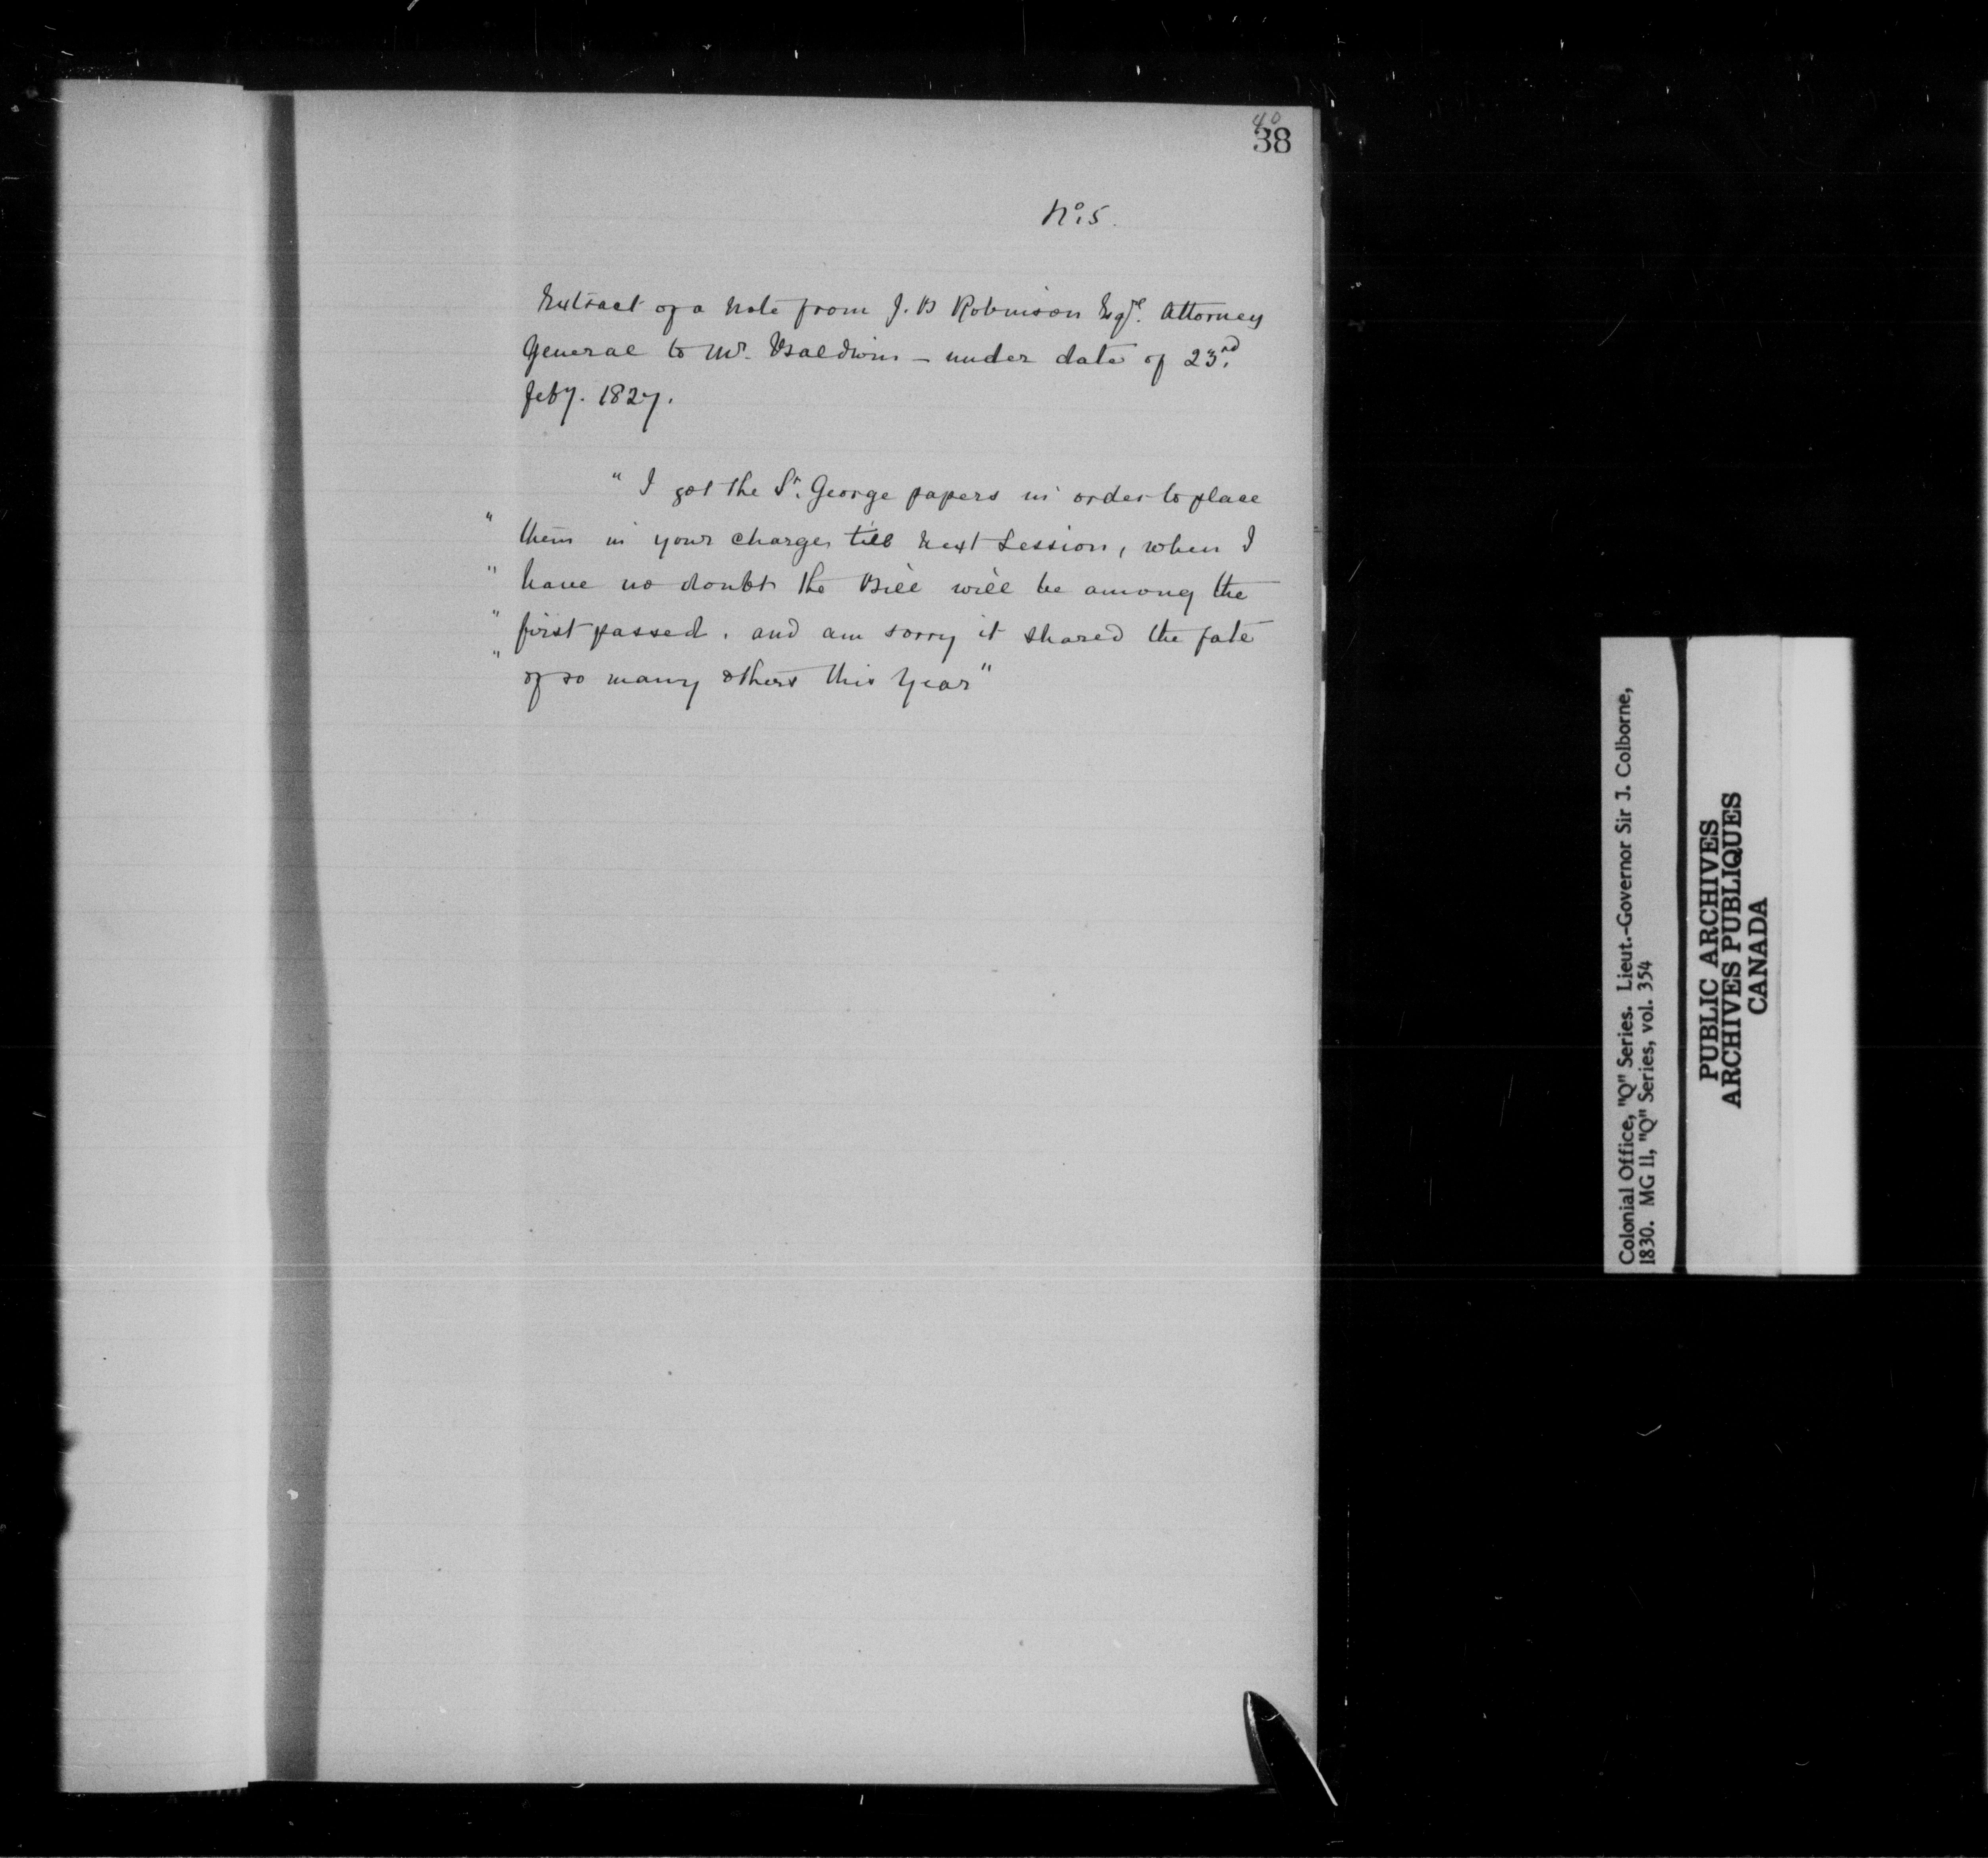 40
38
No. 5.
Extract of a Note from J. B Robinson Esqre. Attorney
General to Mr. Baldwin - under date of 23rd.
Feby. 1827.
" I got the St. George papers in order to place
" them in your charge till next Session, when I
" have no doubt the Bill will be among the
" first passed. and am sorry it shared the fate
" of so many others this Year"
Colonial Office, "Q" Series. Lieut.-Governor Sir J. Colborne,
1830. MG 11, "Q" Series, vol. 354
PUBLIC ARCHIVES
ARCHIVES PUBLIQUES
CANADA